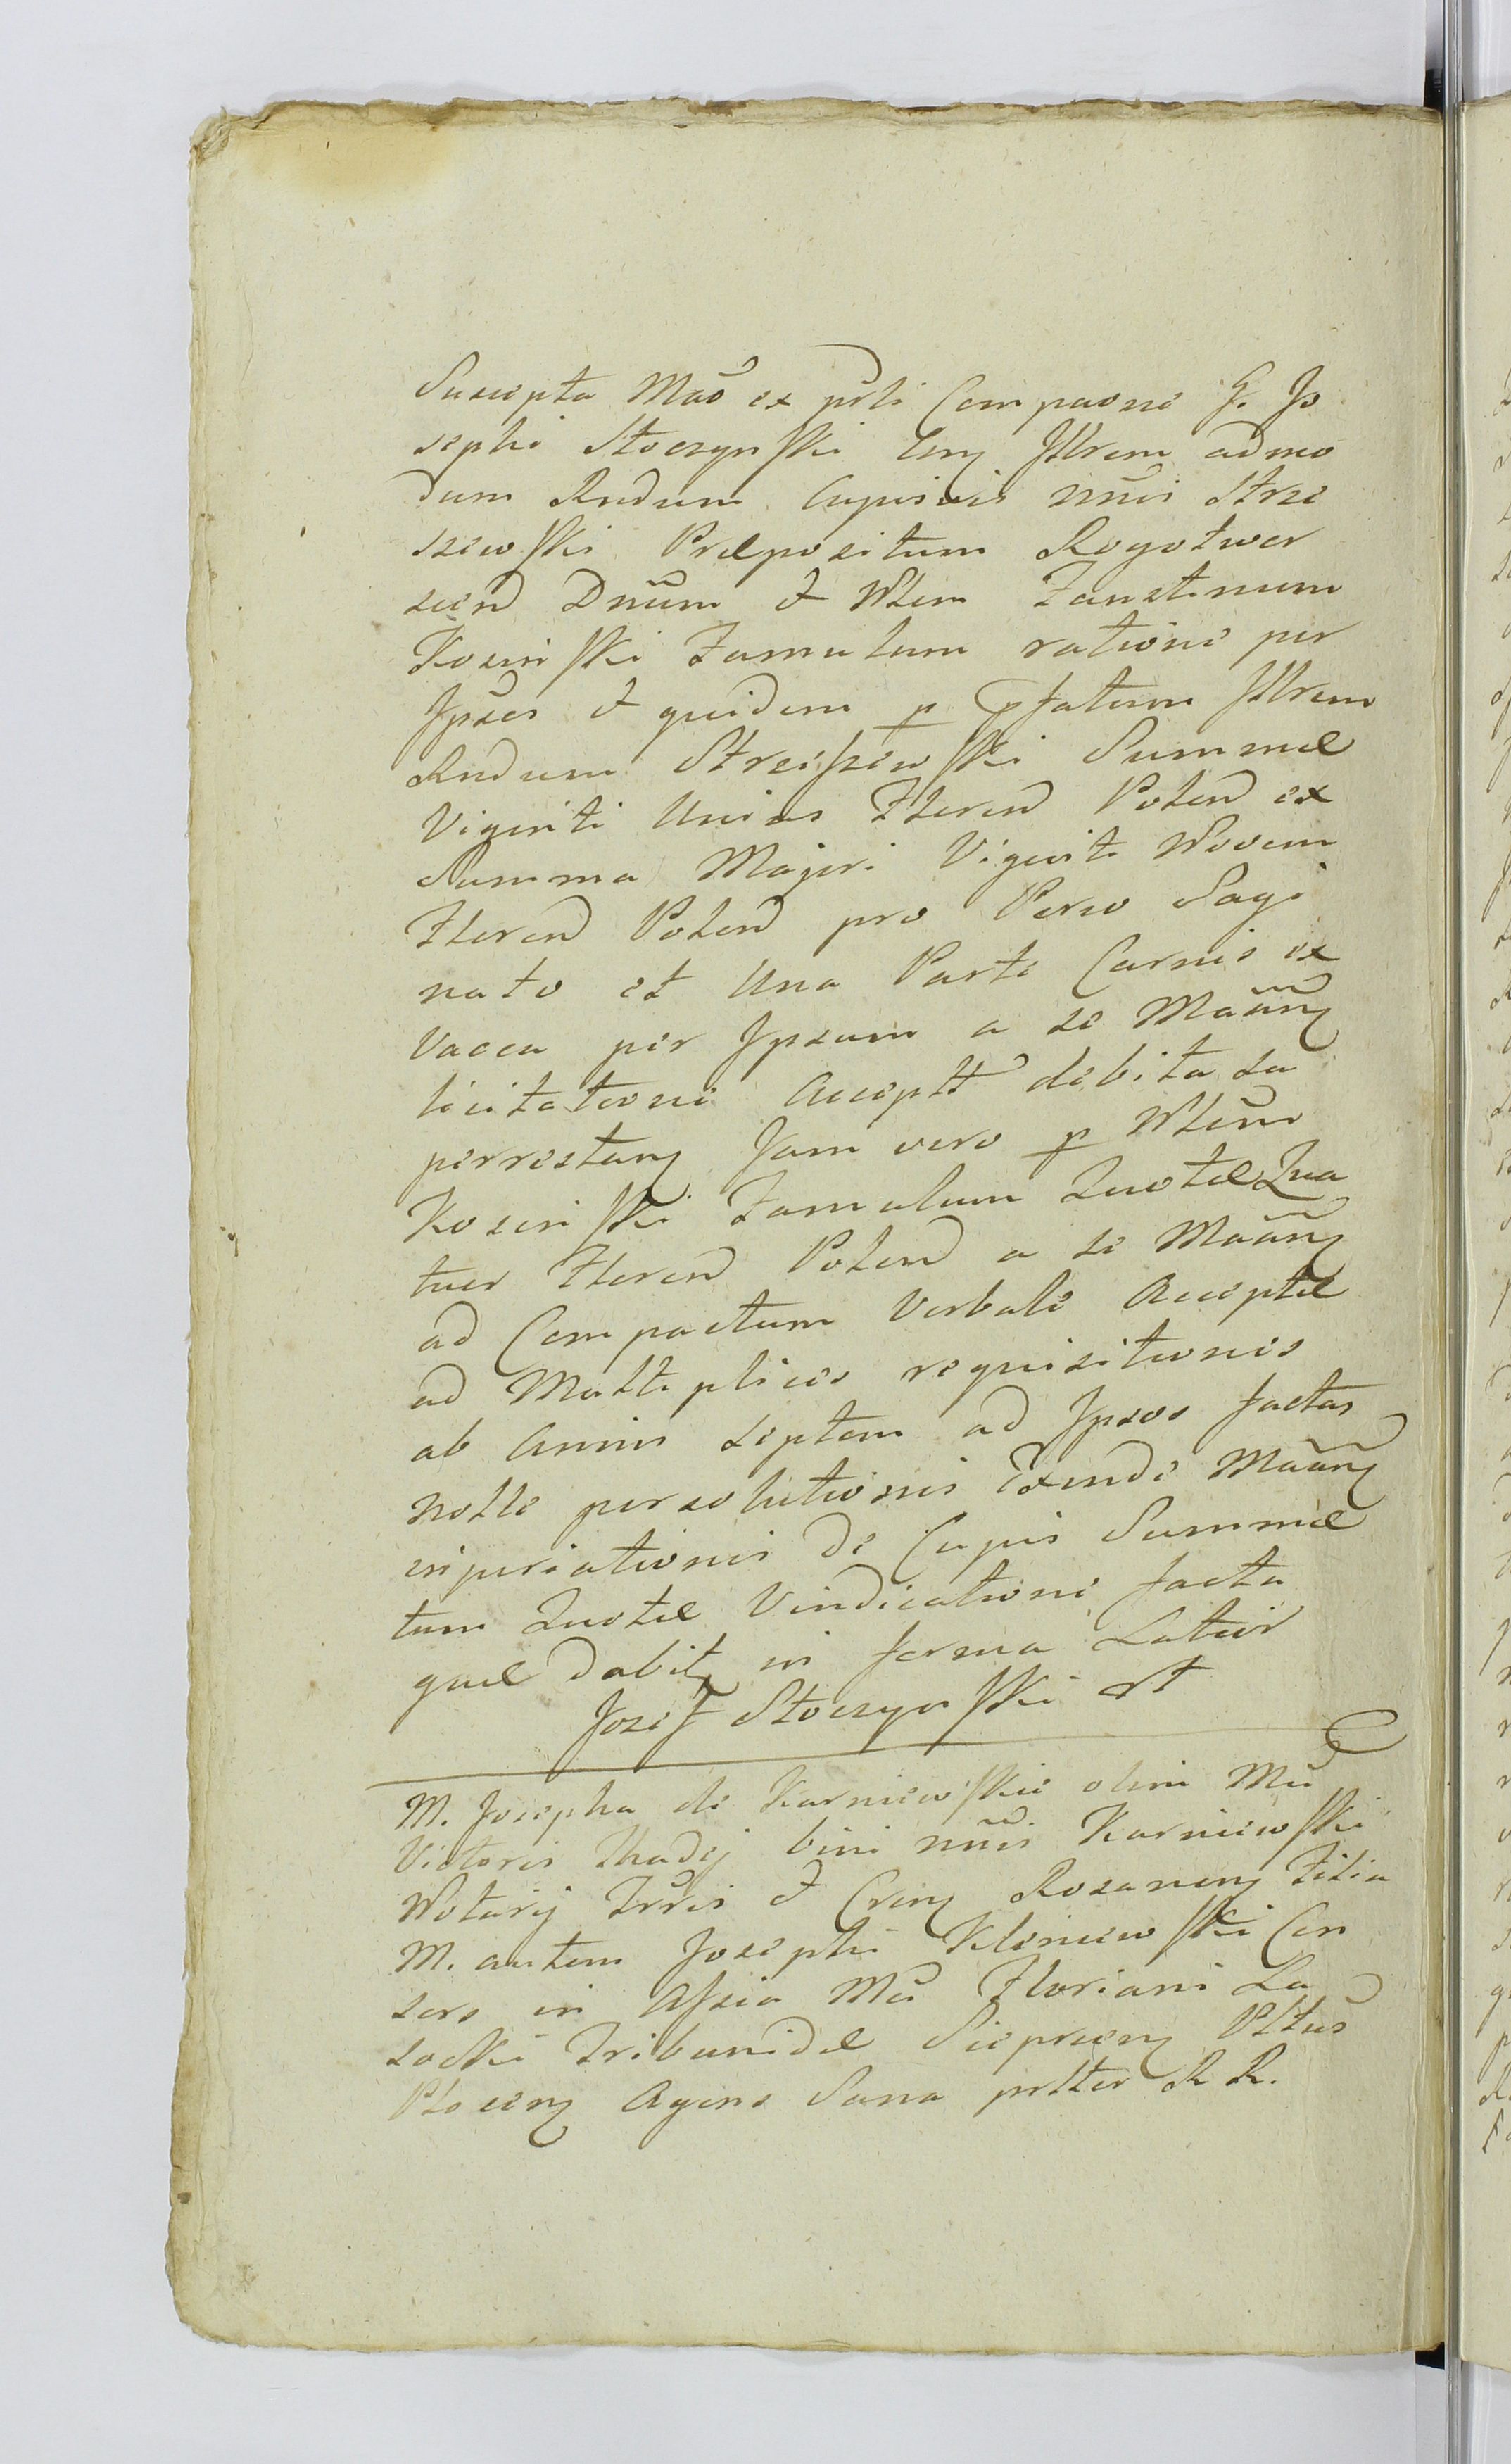 Suscepta Mãõ ex pñli Compaone G. Jo
sephi Stoczynski Cnz Jllrem admo
dum Rndum Cujusvis nñis Strze
szewski Præpositum Rogotwor
scen Dnũm & Nblem Faustinum
Kosinski Famulum ratione per
Jpsos & quidem p pfatum Jllrem
Rndum Strzeszewski Summæ
Viginti Unius Floren Polon ex
Summa Majori Viginti Novem
Floren Polon pro Porco Sagi
nato et Una Parte Carnis ex
Vacca per Jpsum a se Mããnz
licitatione Accept debita su
perrestanz Jam vero p Nblem
Kosinski Famulum Quotæ Qua
tuor Floren Polon a se Mããnz
ad Compactum Verbale Acceptæ
ad Multiplices requisitiones
ab Annis Septem ad Jpsos factas
nolle persolutionis Exinde Mããnz
injuriationis de Cujus Summæ
tum Quotæ Vindicatione facta
quæ dabitz in forma Latior
Jozef Stoczynski mp
M. Josepha de Karniewskie olim Mci
Victoris Thadej bini nñis Karniewski
Notarij Trris & Crenz Rozanenz Filia
M. autem Josephi Kleniewski Con
sors in Assia Mci Floriani La
socki Tribunidæ Sieprcenz Pltus
Plocenz Agens Sana pntter R R.